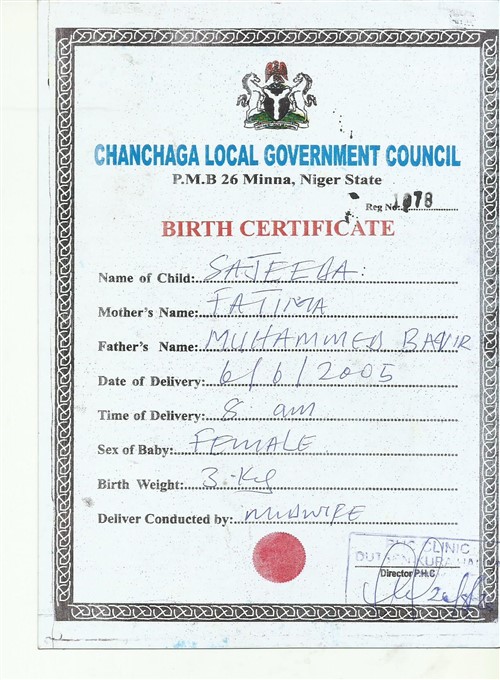 CHANCHAGA LOCAL GOVERNMENT COUNCIL
P.M.B 26 Minna, Niger State
Reg No. 1078
BIRTH CERTIFICATE
Name of Child: SAJEEDA
Mother's Name: FATIMA
Father's Name: MUHAMMED
Date of Delivery: 6/6/2005
Time of Delivery: 8 am
Sex of Baby: FEMALE
Birth Weight: 3.Kg
Deliver Conducted by: MIDWIFE
CLINIC
Director P.H.C